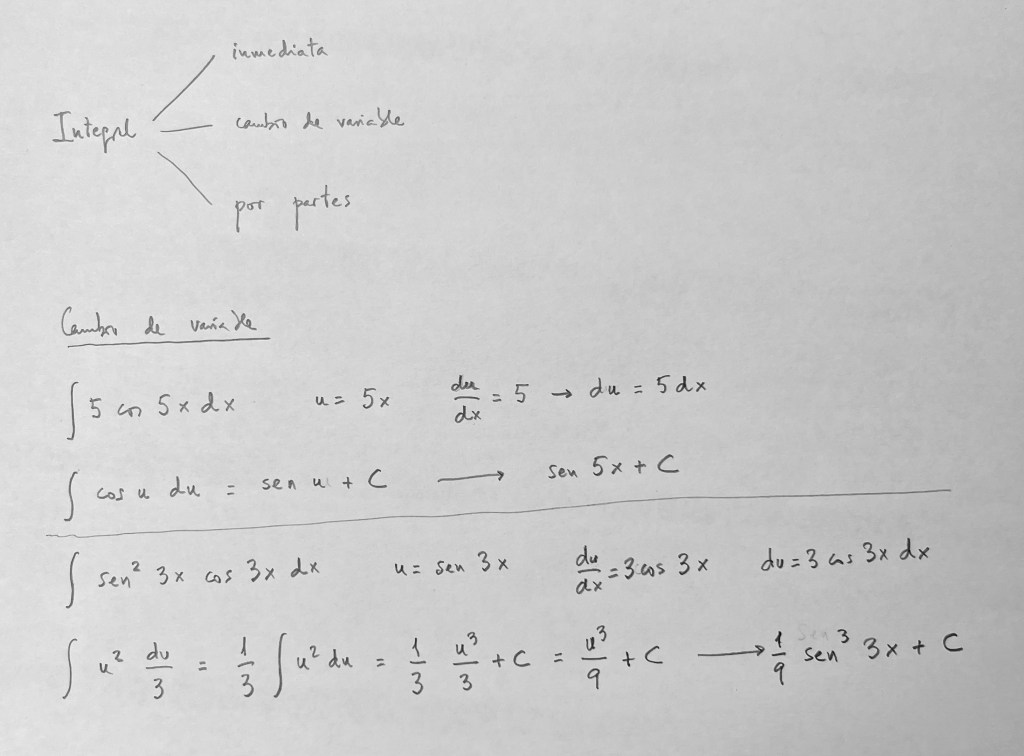 inmediata
Integral cambio de variable
por partes
Cambio de variable
∫ 5 cos 5x dx u = 5x du/dx = 5 → du = 5 dx
∫ cos u du = sen u + C ⟶ sen 5x + C
∫ sen² 3x cos 3x dx u = sen 3x du/dx = 3 cos 3x du = 3 cos 3x dx
∫ u² du/3 = 1/3 ∫ u² du = 1/3 u³/3 + C = u³/9 + C ⟶ 1/9 sen³ 3x + C